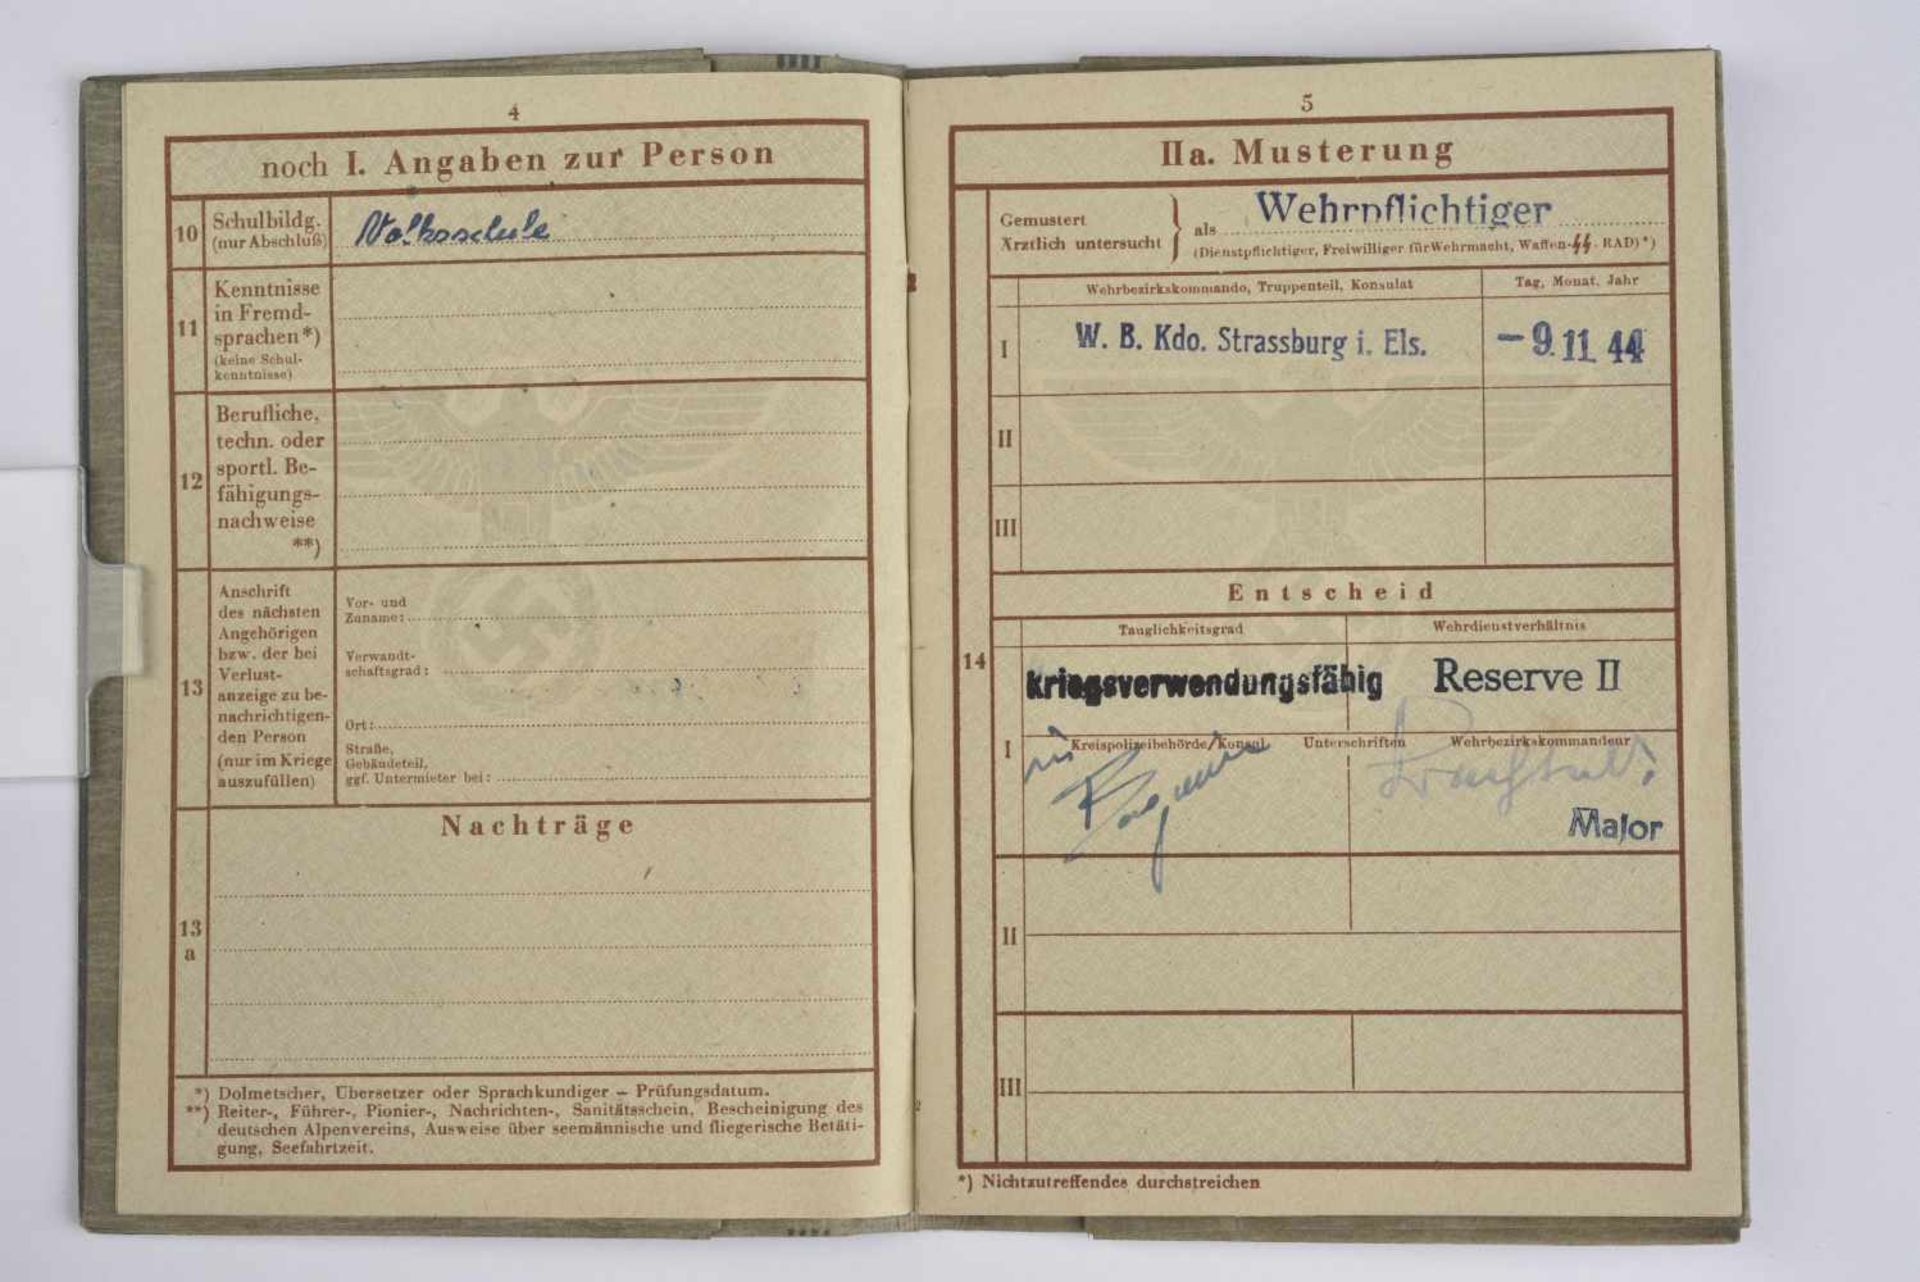 4
noch I. Angaben zur Person
10 Schulbildg. (nur Abschluß) Volksschule
11 Kenntnisse
in Fremd-
sprachen*)
(keine Schul-
kenntnisse)
12 Berufliche,
techn. oder
sportl. Be-
fähigungs-
nachweise
**)
13 Anschrift
des nächsten
Angehörigen
bzw. der bei
Verlust-
anzeige zu be-
nachrichtigen-
den Person
(nur im Kriege
auszufüllen)
Vor- und
Zuname:
Verwandt-
schaftsgrad:
Ort:
Straße,
Gebäudeteil,
ggf. Untermieter bei:
Nachträge
13
a
*) Dolmetscher, Übersetzer oder Sprachkundiger – Prüfungsdatum.
**) Reiter-, Führer-, Pionier-, Nachrichten-, Sanitätsschein, Bescheinigung des
deutschen Alpenvereins, Ausweise über seemännische und fliegerische Betäti-
gung, Seefahrtzeit.
5
IIa. Musterung
Gemustert
Ärztlich untersucht
als Wehrpflichtiger
(Dienstpflichtiger, Freiwilliger für Wehrmacht, Waffen-SS, RAD)*)
Wehrbezirkskommando, Truppenteil, Konsulat Tag, Monat, Jahr
I W. B. Kdo. Strassburg i. Els. – 9. 11. 44
II
III
Entscheid
14
Tauglichkeitsgrad Wehrdienstverhältnis
kriegsverwendungsfähig Reserve II
I Kreispolizeibehörde/Konsul Unterschriften Wehrbezirkskommandeur
Major
II
III
*) Nichtzutreffendes durchstreichen